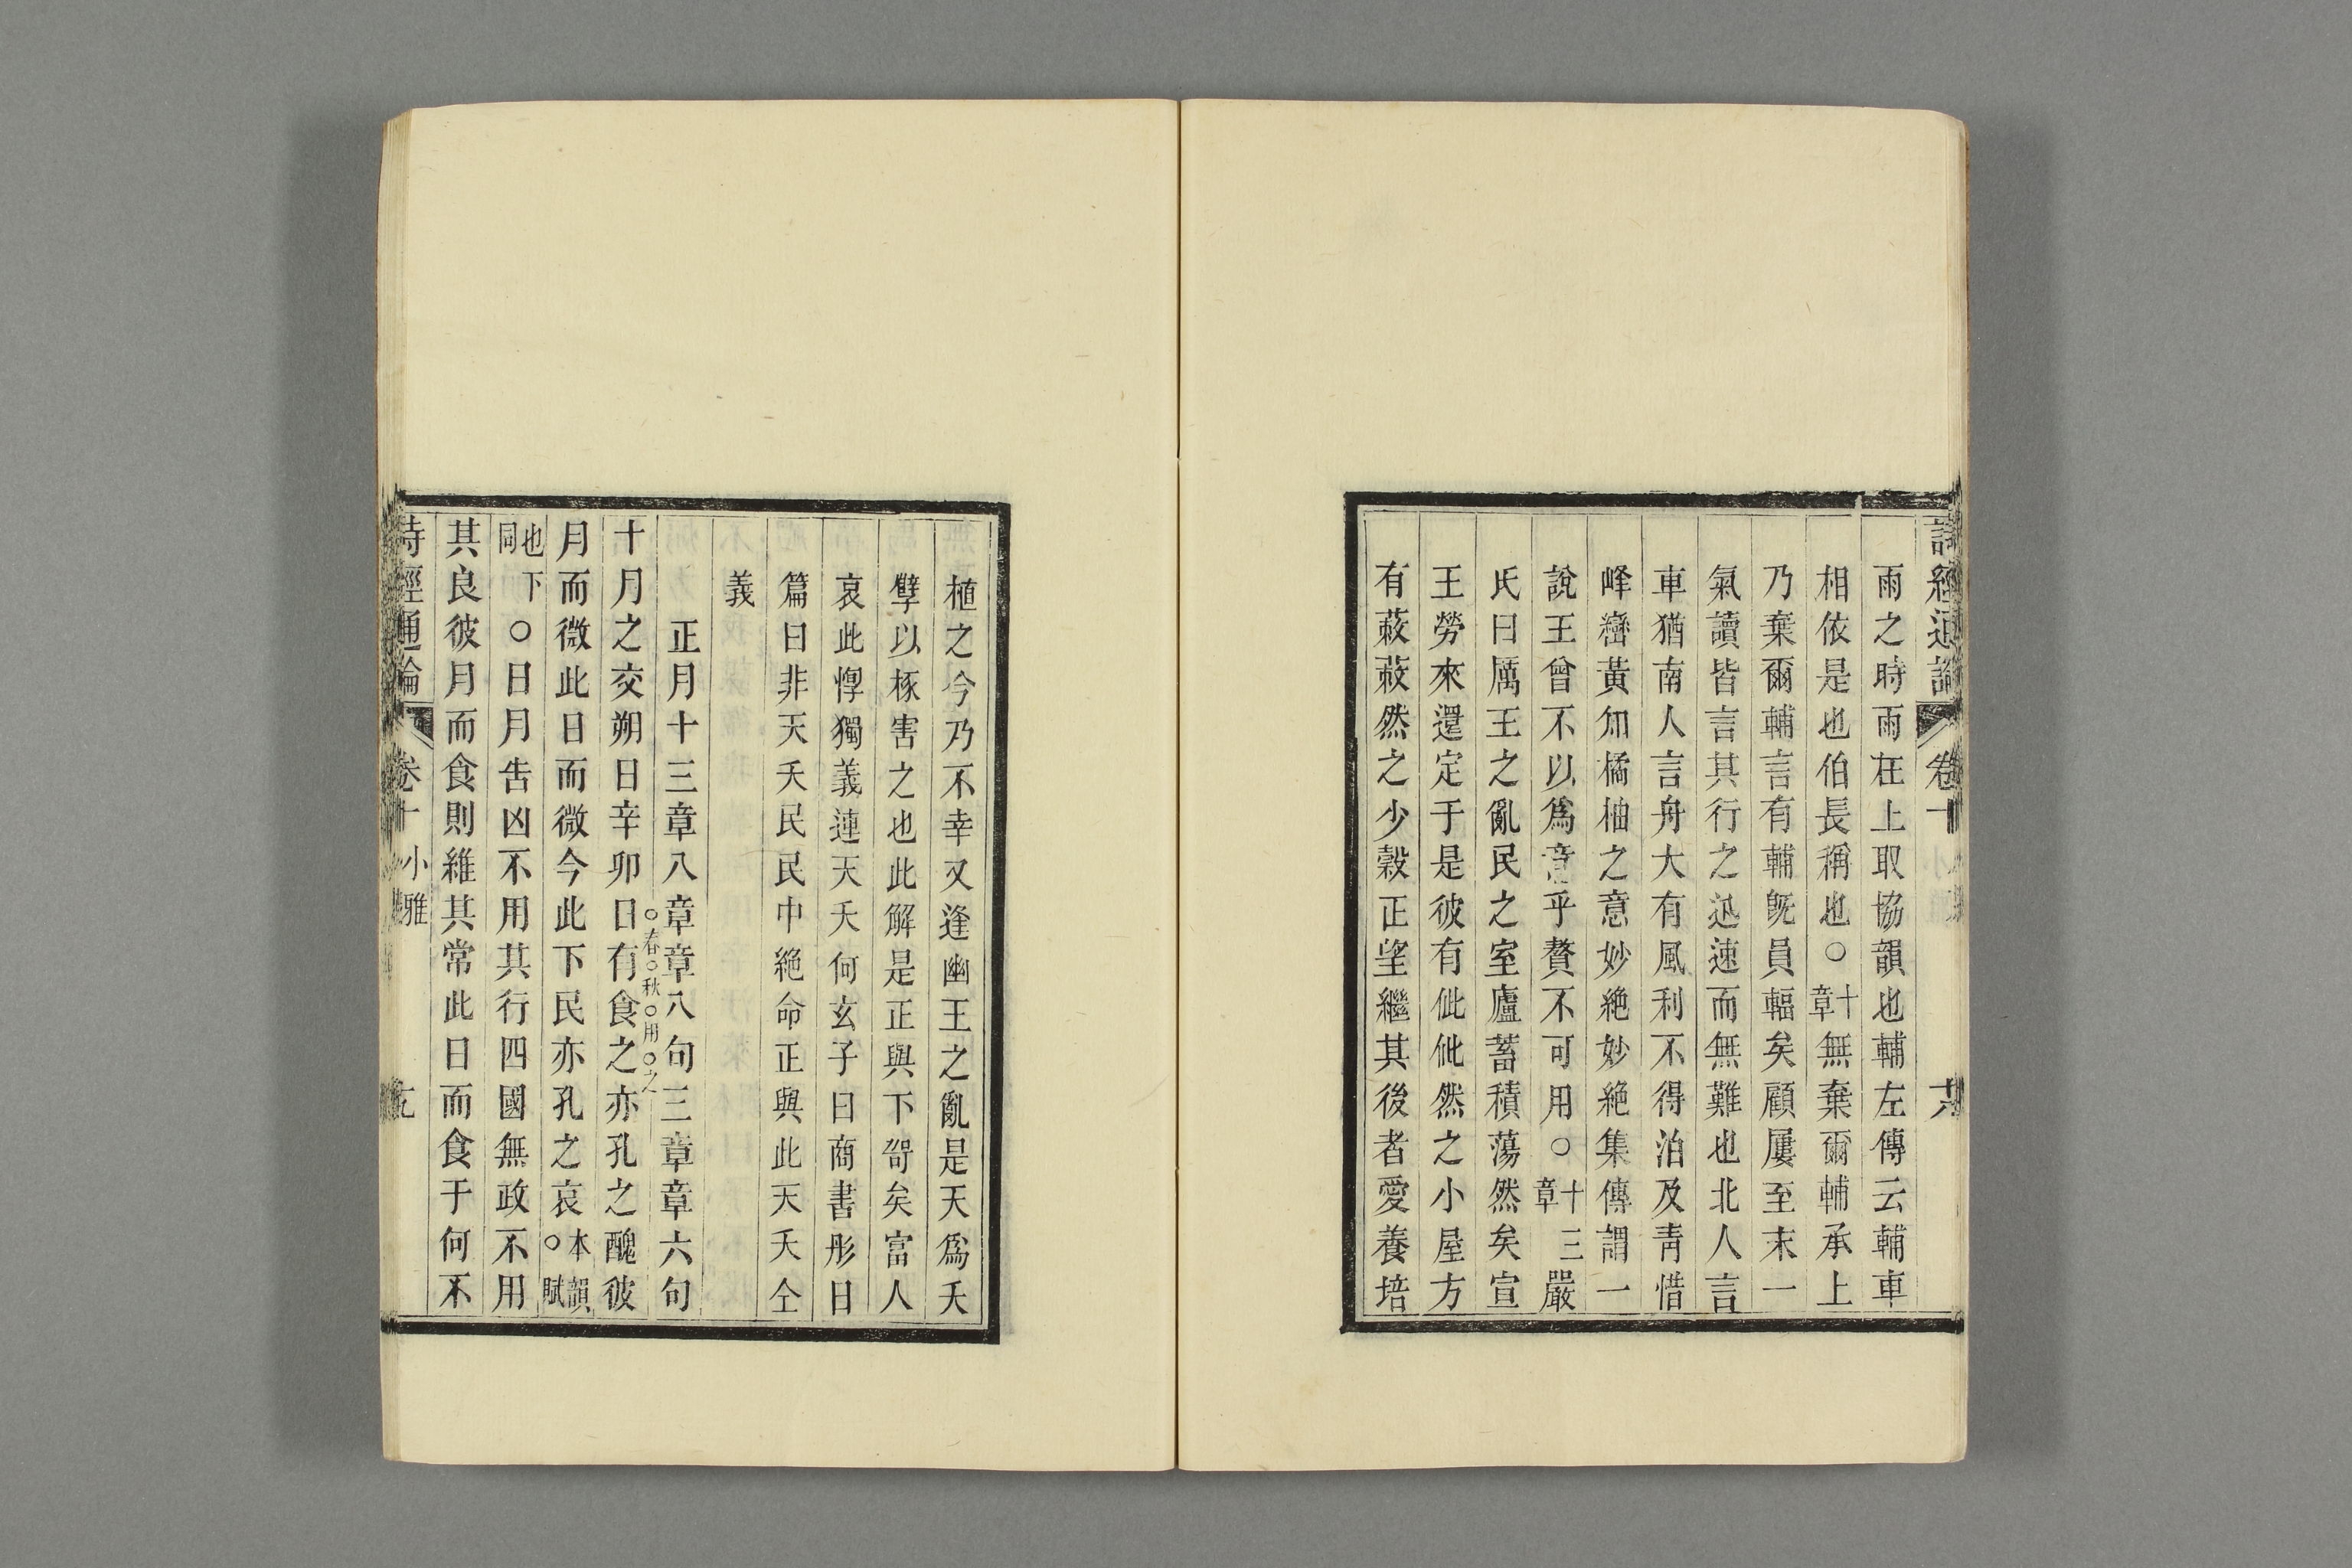 詩經通論 卷十 六
雨之時雨在上取協韻也輔左傳云輔車
相依是也伯長稱也○十章無棄爾輔承上
乃棄爾輔言有輔旣員輻矣顧屢至末一
氣讀皆言其行之迅速而無難也北人言
車猶南人言舟大有風利不得泊及靑惜
峰巒黃知橘柚之意妙絶妙絶集傳謂一
說王曾不以爲意乎贅不可用○十三章嚴
氏曰厲王之亂民之室廬蓄積蕩然矣宣
王勞來還定于是彼有佌佌然之小屋方
有蔌蔌然之少穀正望繼其後者愛養培
植之今乃不幸又逢幽王之亂是天爲夭
孽以椓害之也此解是正與下哿矣富人
哀此惸獨義連天夭何玄子曰商書肜日
篇曰非天夭民民中絶命正與此天夭仝
義
正月十三章八章章八句三章章六句
十月之交朔日辛卯日有食之亦孔之醜彼
○春○秋○用○之
月而微此日而微今此下民亦孔之哀本韻○賦
也下同○日月告凶不用其行四國無政不用
其良彼月而食則維其常此日而食于何不
詩經通論 卷十 小雅